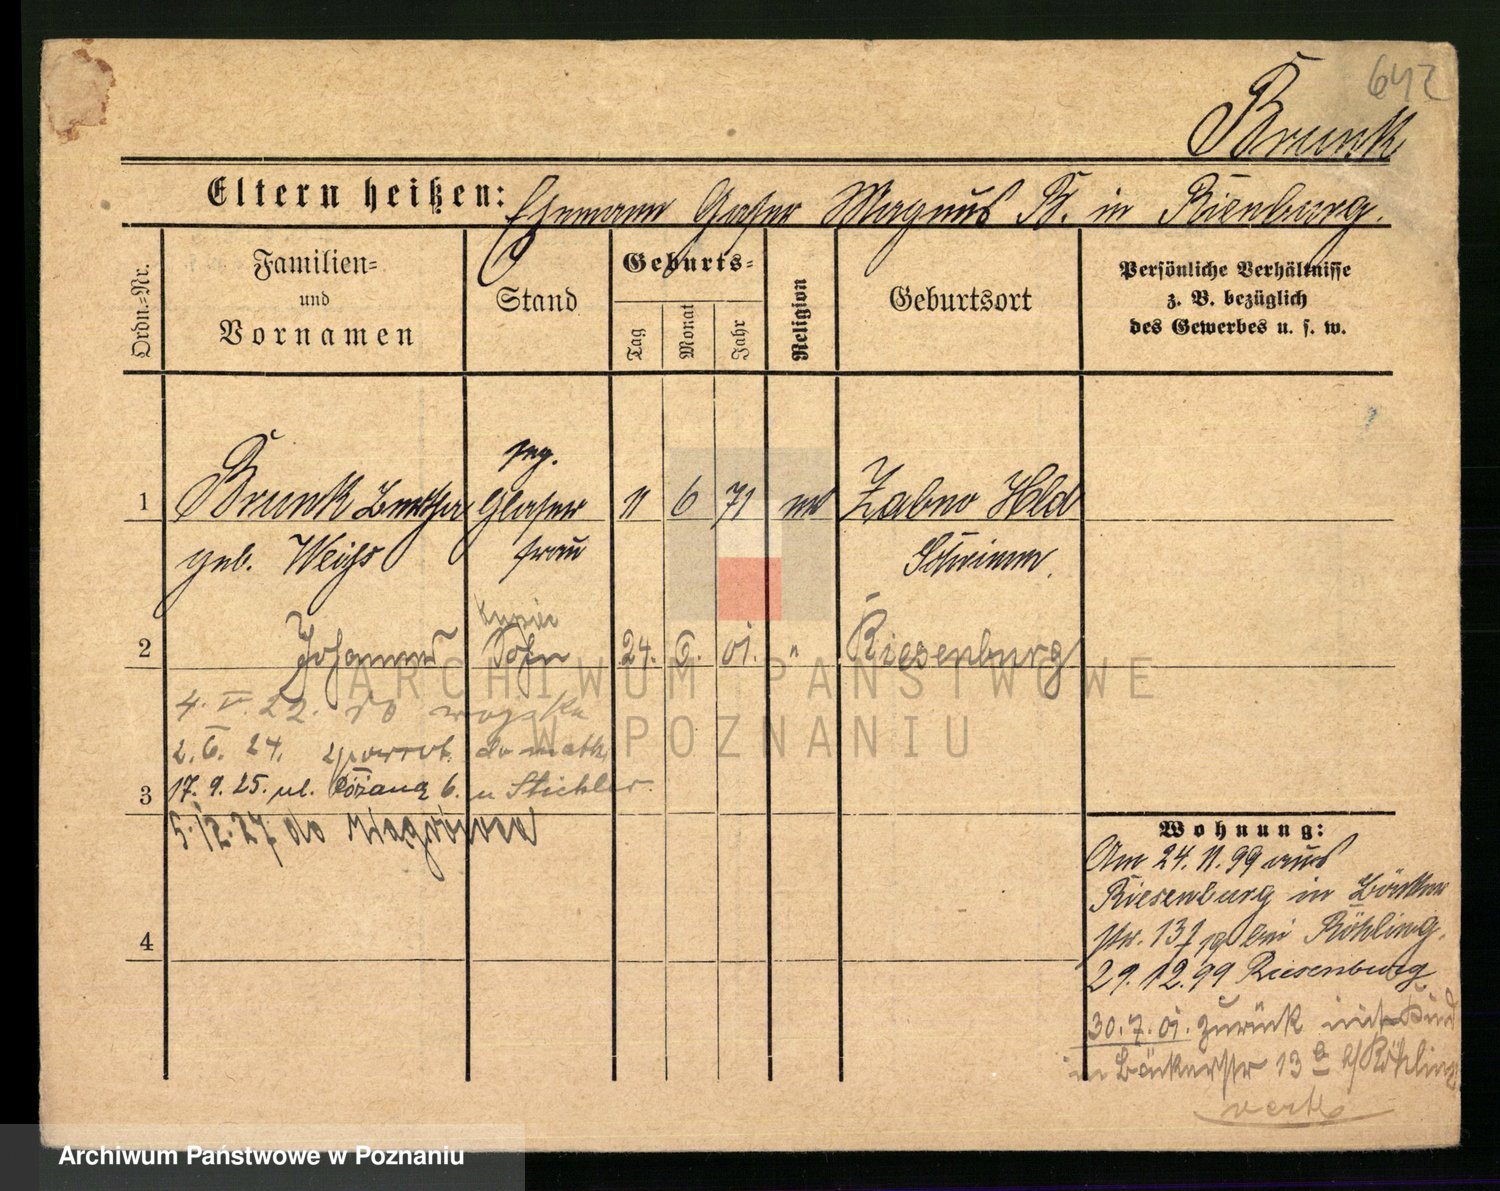 642
Brunk
Eltern heißen: Ehemann Glaser Magnus B. in Rienburg.
Ordn.=Nr.
Familien=
und
Vornamen
Stand
Geburts=
Tag
Monat
Jahr
Religion
Geburtsort
Persönliche Verhältnisse
z. B. bezüglich
des Gewerbes u. s. w.
1 Brunk Bertha Glaser 11 6 71 Zabno Hld
geb. Weichs frau Schrimm.
2 Johannes Sohn 24. 6. 01. " Riesenburg
4. V. 22. do wojska
2. 6. 24. zpowrot. do matk.
3 17. 9. 25. ul. Różana 6. u Stichler.
5.12.27 do
4
Wohnung:
Am 24. 11. 99 aus
Riesenburg in Bäcker
str. 13 bei Röhling.
29. 12. 99 Riesenburg
30. 7. 01. zurück mit Kind
in Bäckerstr 13a b/Röhling
ARCHIWUM PAŃSTWOWE
W POZNANIU
Archiwum Państwowe w Poznaniu